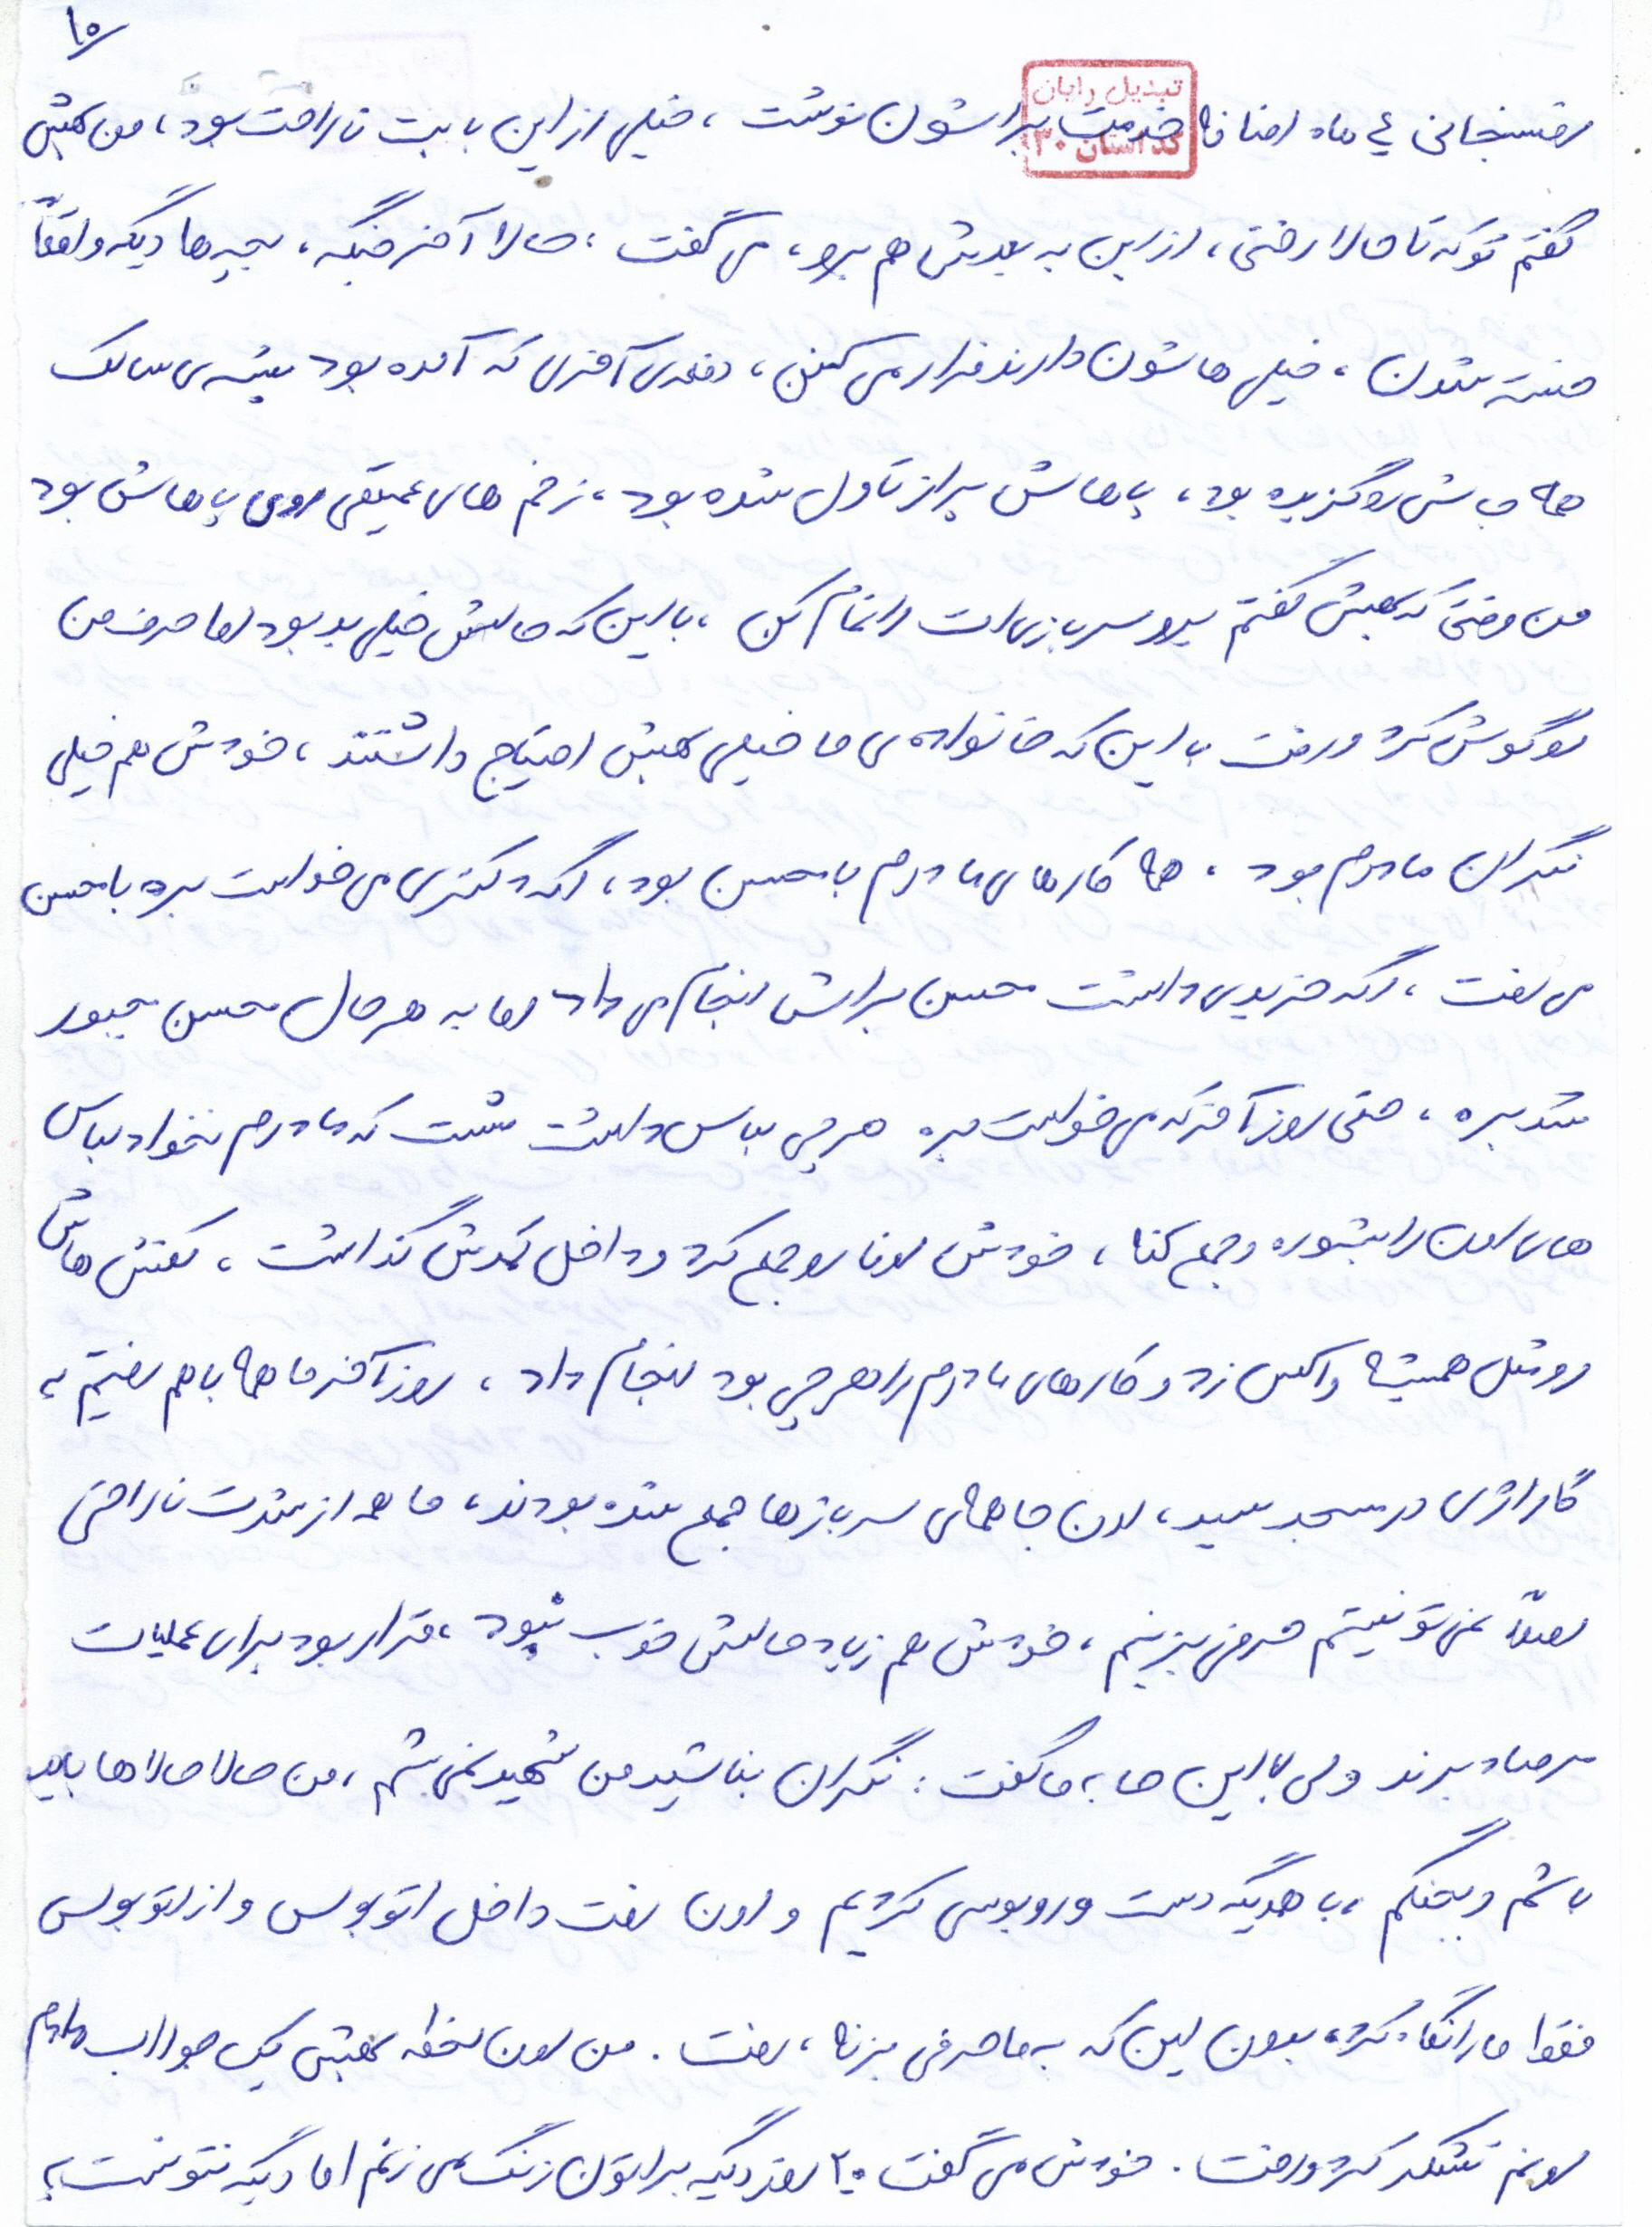 ۱۰
تبدیل رایان
کد انسان ۳۰
رفسنجانی ۴ ماه اضافه خدمت براشون نوشت ، خیلی از این بابت ناراحت بود ، من بهش
گفتم تو که تا حالا رفتی ، از این به بعدش هم برو ، می گفت ، حالا آخر جنگه ، بچه ها دیگه واقعاً
خسته شدن ، خیلی هاشون دارند فرار می کنن ، دفعه ی آخری که آمده بود پشه ی سالک
همه جاش رو گزیده بود ، پاهاش پر از تاول شده بود ، زخم های عمیقی روی پاهاش بود
من وقتی که بهش گفتم برو سربازی ات را تمام کن ، با این که حالش خیلی بد بود اما حرف من
رو گوش کرد و رفت با این که خانواده ی ما خیلی بهش احتیاج داشتند ، خودش هم خیلی
نگران مادرم بود ، همه کارهای مادرم با محسن بود ، اگه دکتری می خواست بره با محسن
می رفت ، اگه خریدی داشت محسن براش انجام می داد اما به هر حال محسن مجبور
شد بره ، حتی روز آخر که می خواست بره هر چی لباس داشت شست که مادرم نخواد لباس
های اون را بشوره و جمع کنه ، خودش اونا رو جمع کرد و داخل کمدش گذاشت ، کفش هاش
رو مثل همیشه واکس زد و کارهای مادرم را هر چی بود انجام داد ، روز آخر ما همه با هم رفتیم به
گاراژی در مسجد سید ، اون جا همه ی سربازها جمع شده بودند ، ما همه از شدت ناراحتی
اصلاً نمی تونستیم حرفی بزنیم ، خودش هم زیاد حالش خوب نبود ، قرار بود برای عملیات
مرصاد برند ولی با این حا به ما گفت : نگران نباشید من شهید نمی شم ، من حالا حالاها باید
باشم و بجنگم ، با همدیگه دست و روبوسی کردیم و اون رفت داخل اتوبوس و از اتوبوس
فقط ما را نگاه کرد ، بدون این که به ما حرفی بزنه ، رفت . من اون لحظه بهش یک جوراب دادم
اونم تشکر کرد و رفت . خودش می گفت ۲۰ روز دیگه براتون زنگ می زنم اما دیگه نتونست ،